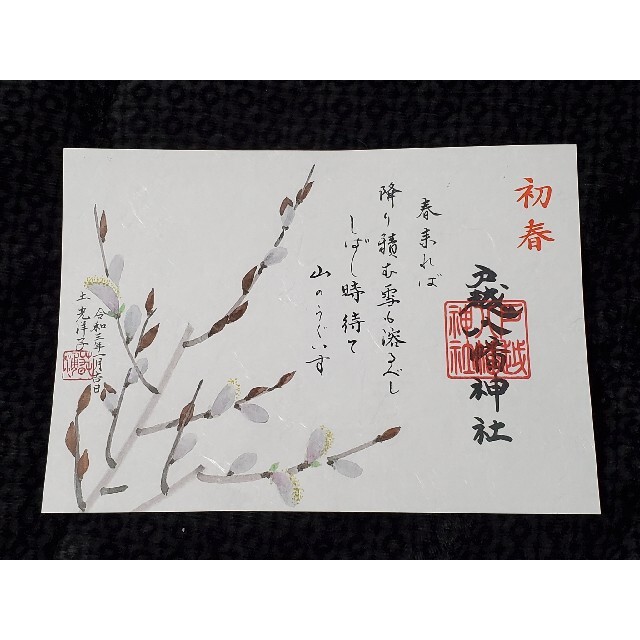 初春
戸越八幡神社
戸越八幡神社
春来れば
降り積む雪も溶るべし
しばし時待て
山のうぐいす
令和三年一月吉日
土光洋子